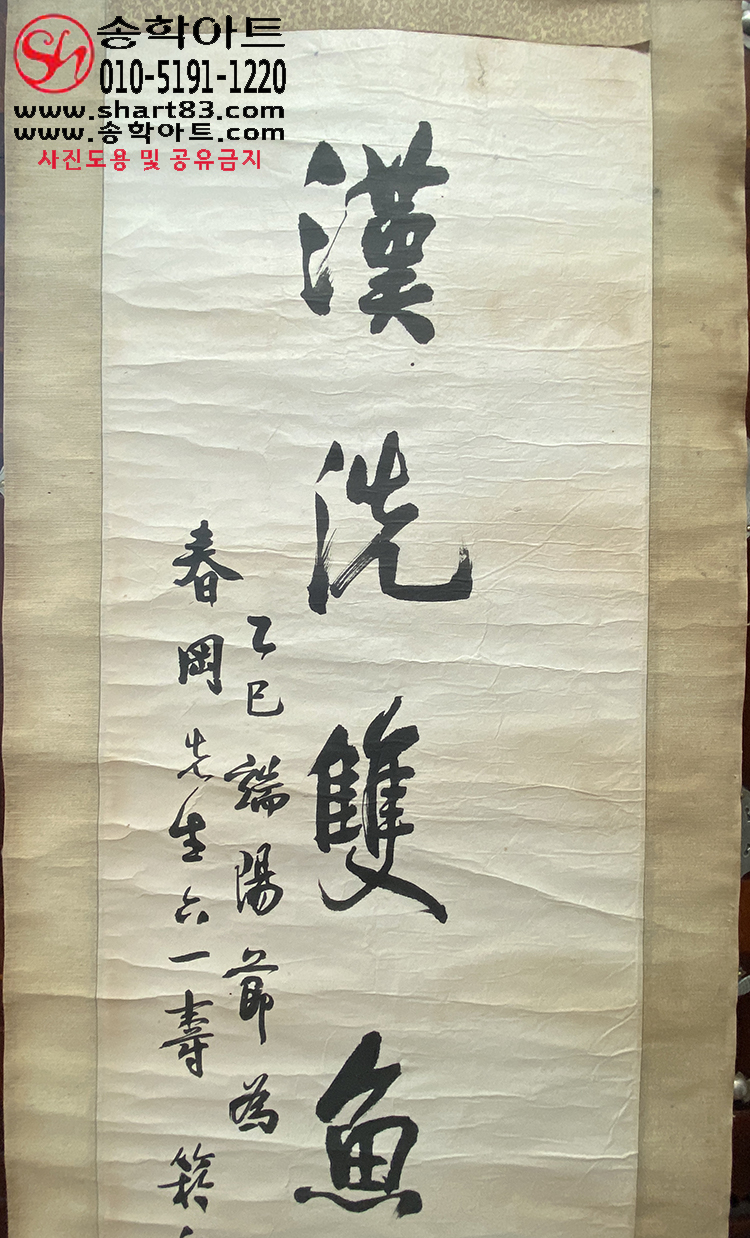 송학아트
010-5191-1220
www.shart83.com
www.송학아트.com
사진도용 및 공유금지
漢洗雙魚
乙巳端陽節為
春岡先生六一壽